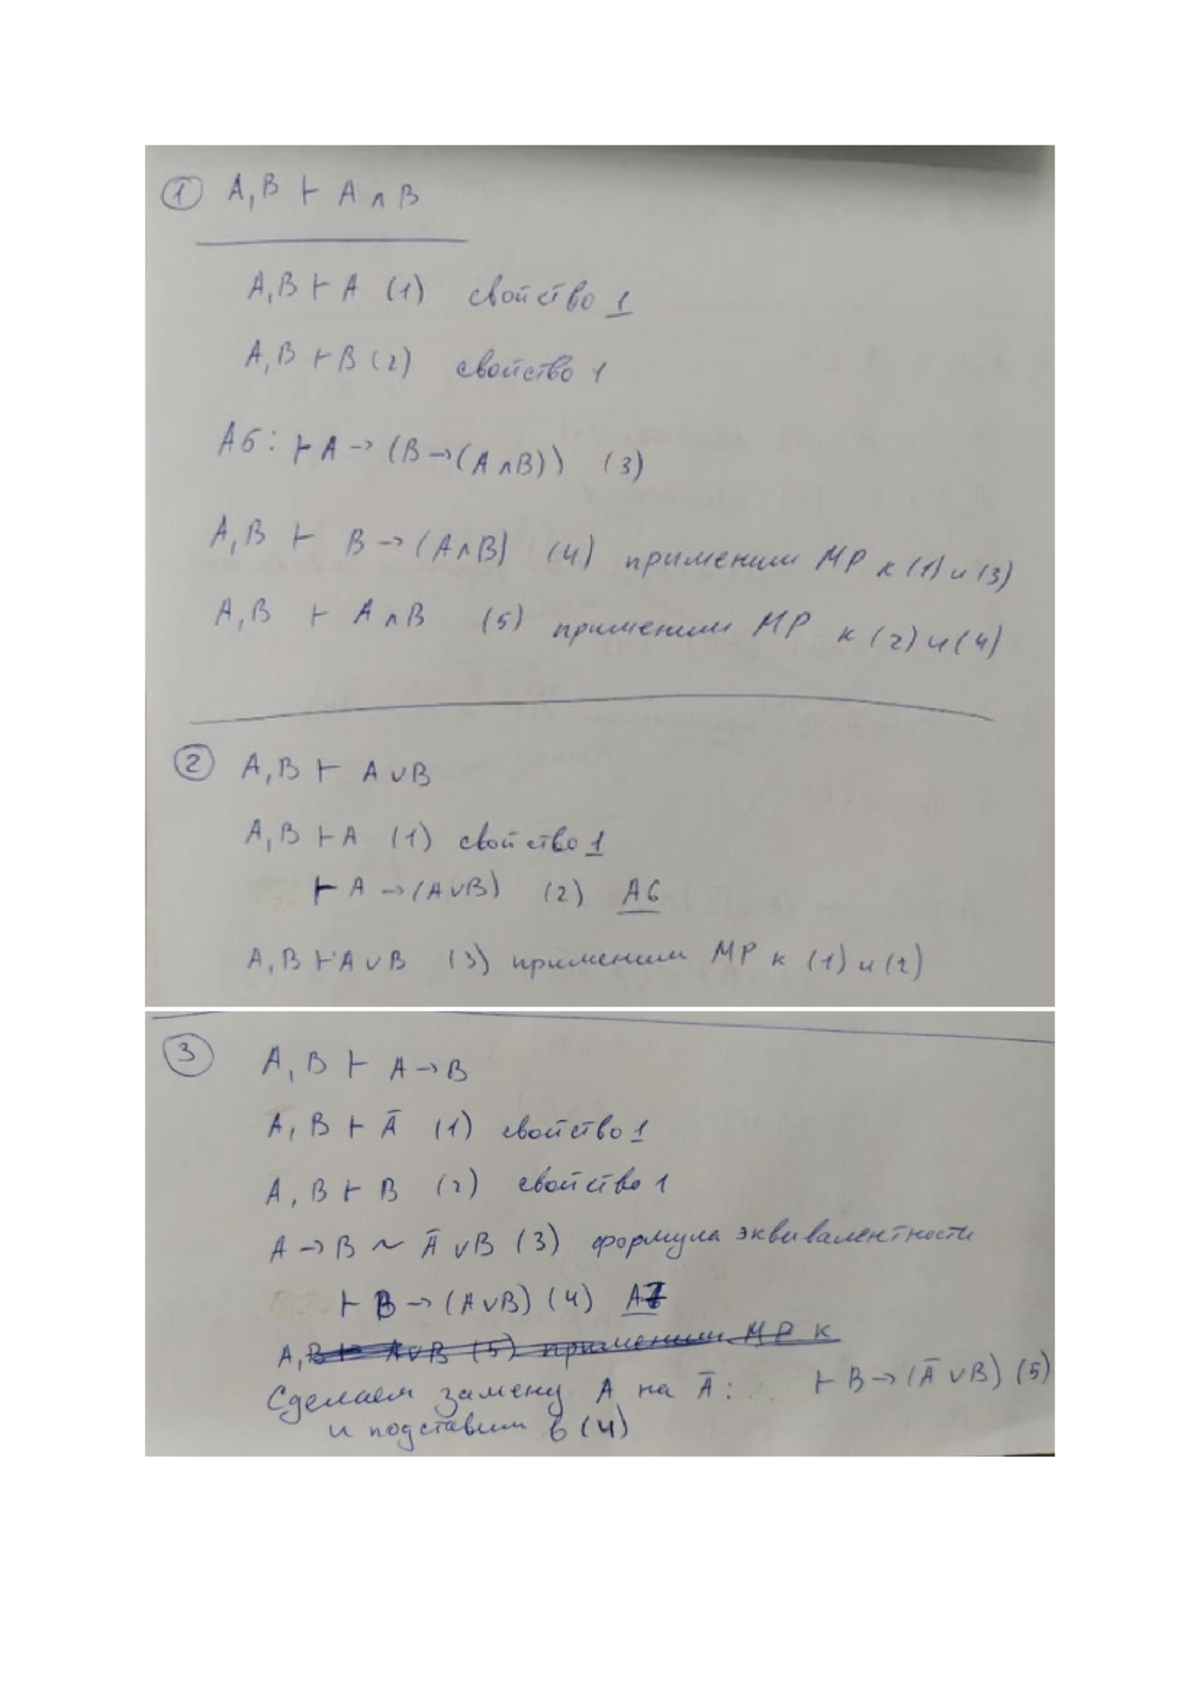 ① A, B ⊢ A ∧ B
A, B ⊢ A (1) свойство 1
A, B ⊢ B (2) свойство 1
А5: ⊢ A → (B → (A ∧ B)) (3)
A, B ⊢ B → (A ∧ B) (4) применим МР к (1) и (3)
A, B ⊢ A ∧ B (5) применим МР к (2) и (4)
② A, B ⊢ A ∨ B
A, B ⊢ A (1) свойство 1
⊢ A → (A ∨ B) (2) А6
A, B ⊢ A ∨ B (3) применим МР к (1) и (2)
③ A, B ⊢ A → B
Ā, B ⊢ Ā (1) свойство 1
Ā, B ⊢ B (2) свойство 1
A → B ~ Ā ∨ B (3) формула эквивалентности
⊢ B → (A ∨ B) (4) А7
A, B ⊢ A ∨ B (5) применим МР к
Сделаем замену A на Ā: ⊢ B → (Ā ∨ B) (5)
и подставим в (4)